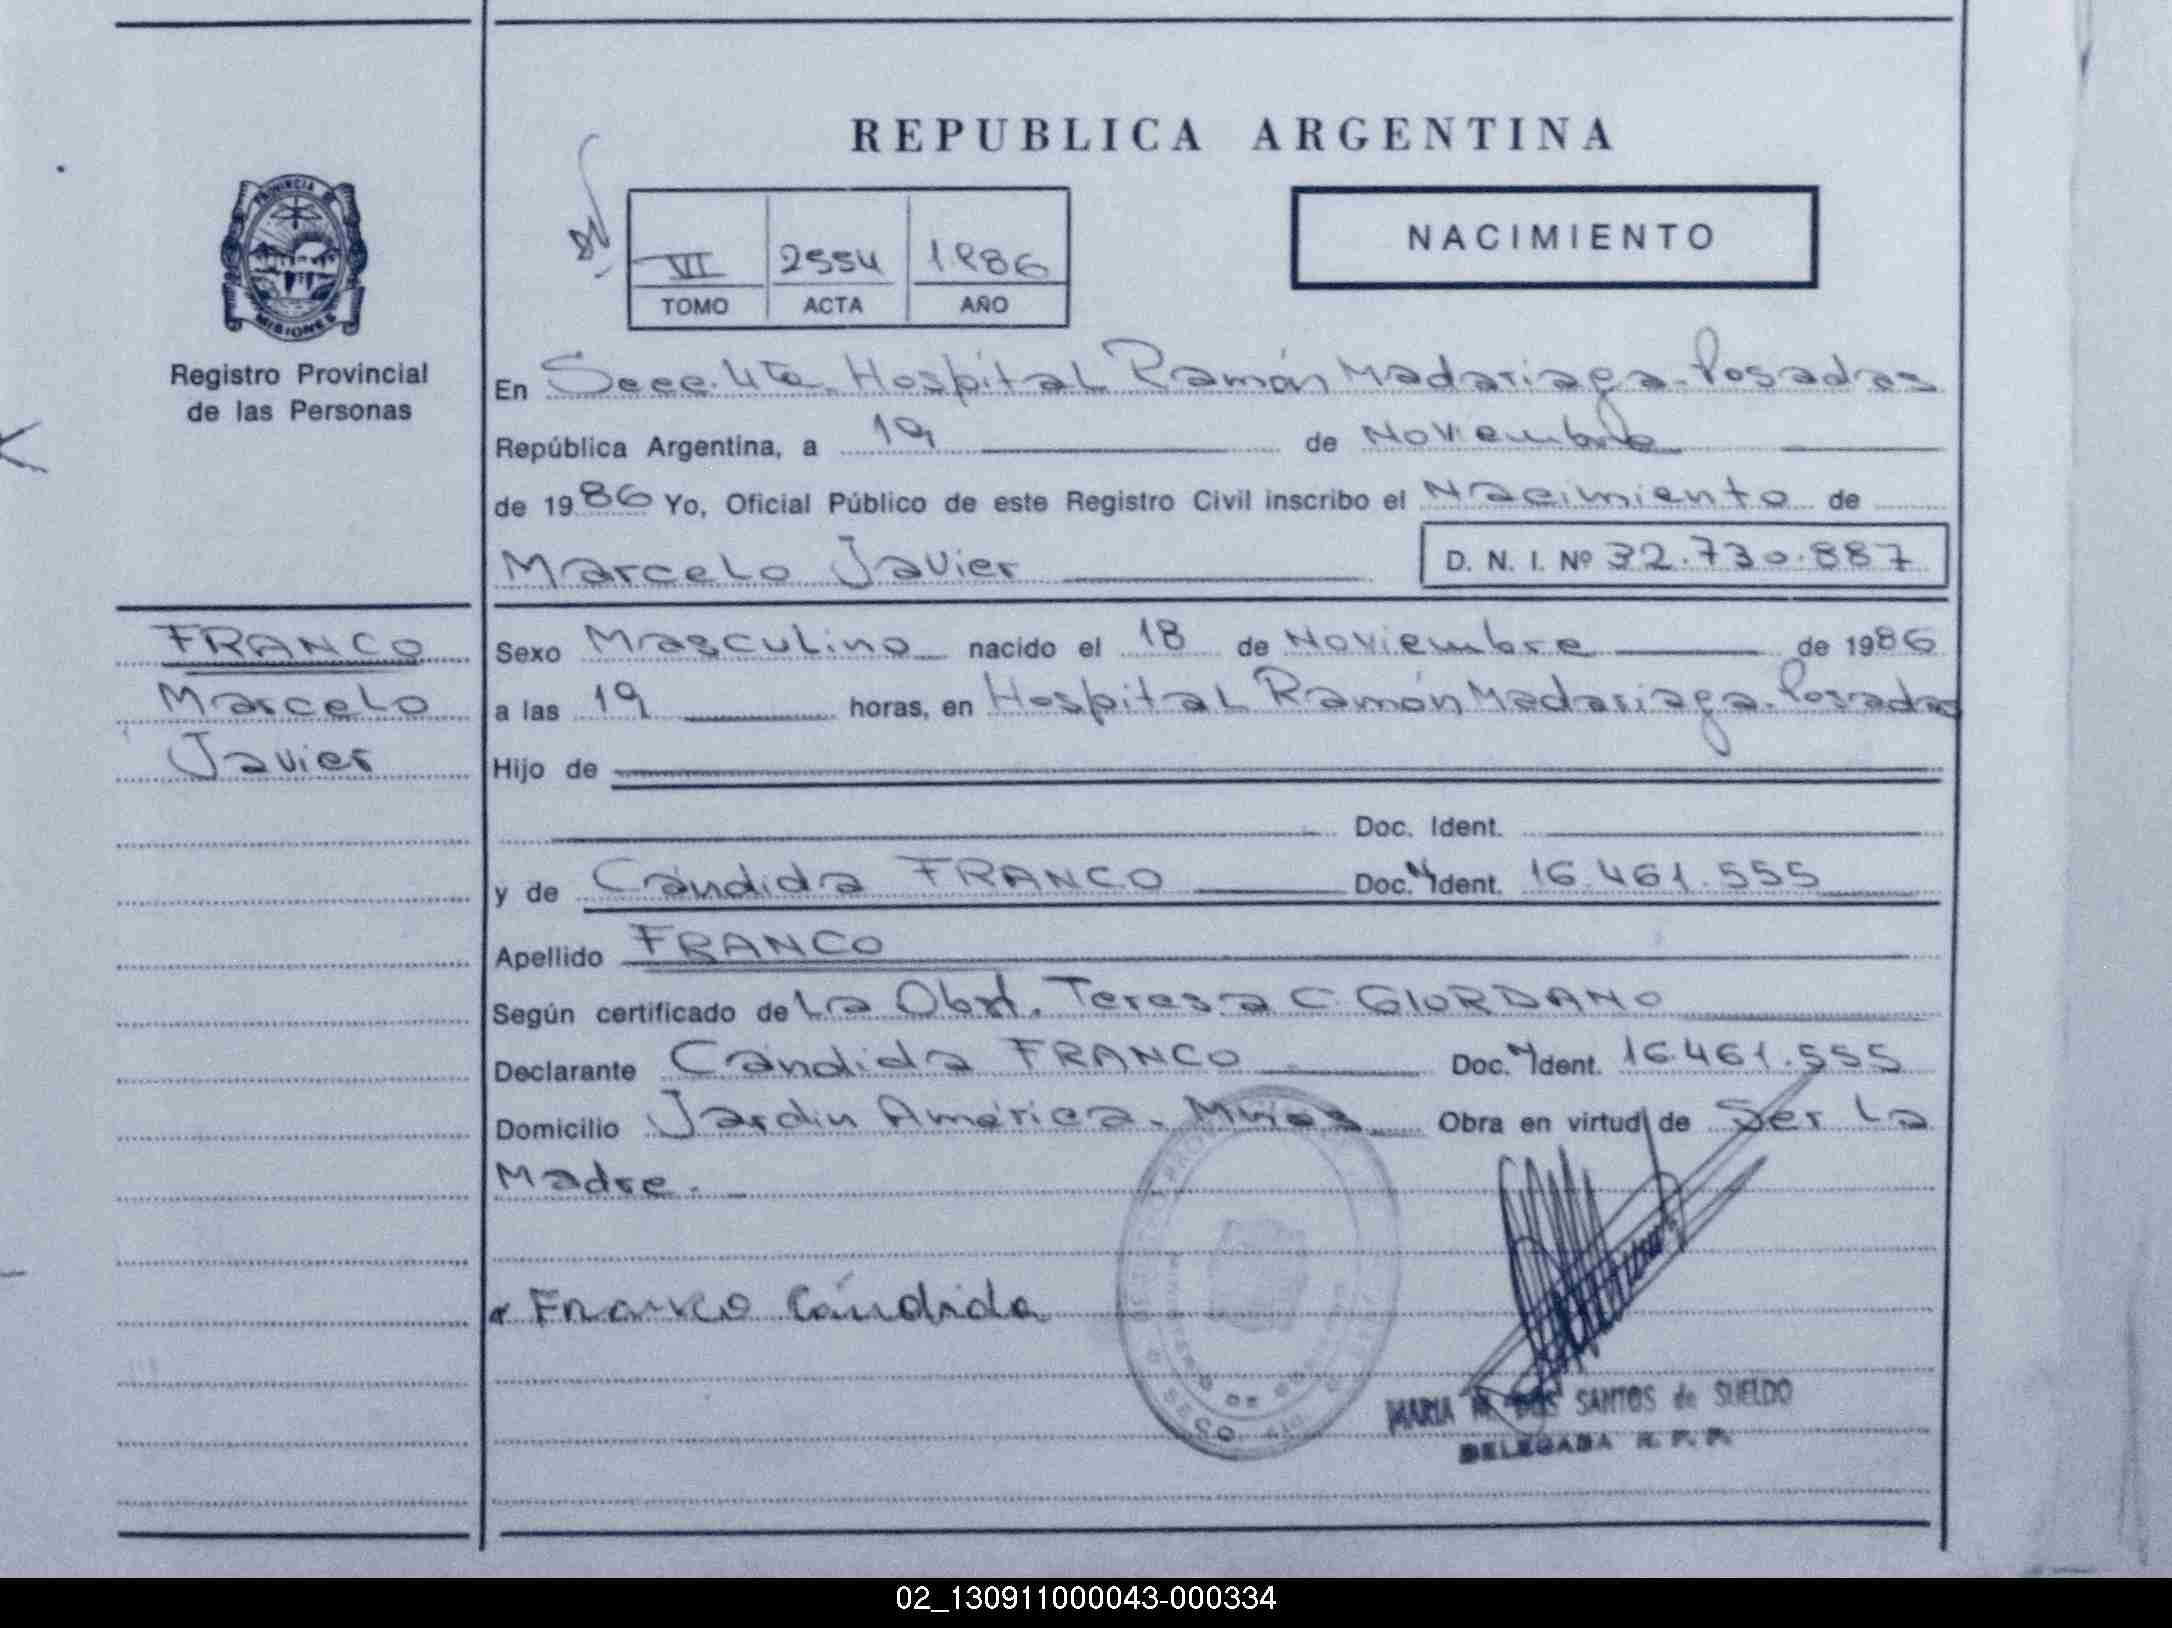 REPUBLICA ARGENTINA
NACIMIENTO
VI 2554 1986
TOMO ACTA AÑO
PROVINCIA DE
MISIONES
Registro Provincial
de las Personas
En Secc. 4ta. Hospital Ramón Madariaga - Posadas
República Argentina, a 19 de Noviembre
de 1986 Yo, Oficial Público de este Registro Civil inscribo el Nacimiento de
Marcelo Javier D. N. I. Nº 32.730.887
FRANCO
Marcelo
Javier
Sexo Masculino nacido el 18 de Noviembre de 1986
a las 19 horas, en Hospital Ramón Madariaga - Posadas
Hijo de
Doc. Ident.
y de Cándida FRANCO Doc. Ident. 16.461.555
Apellido FRANCO
Según certificado de La Obst. Teresa C. GIORDANO
Declarante Cándida FRANCO Doc. Ident. 16.461.555
Domicilio Jardín América - Mnes Obra en virtud de Ser La
Madre.
Franco Cándida
MARIA M. DOS SANTOS de SUELDO
DELEGADA R. P. P.
02_130911000043-000334